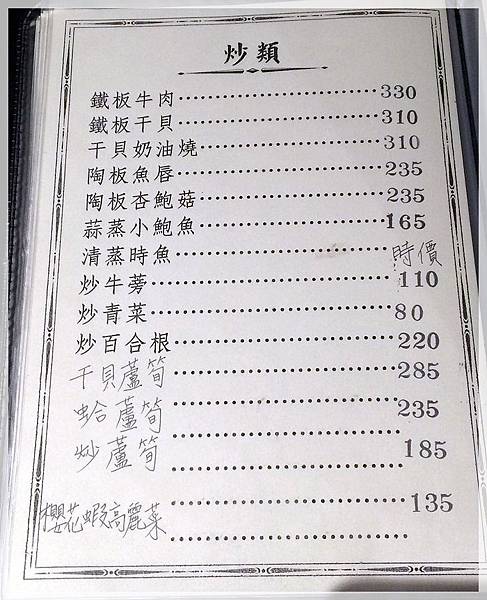 炒類
鐵板牛肉………………330
鐵板干貝………………310
干貝奶油燒………………310
陶板魚唇………………235
陶板杏鮑菇………………235
蒜蒸小鮑魚………………165
清蒸時魚………………時價
炒牛蒡………………110
炒青菜………………80
炒百合根………………220
干貝蘆筍………………285
蛤蘆筍………………235
炒蘆筍………………185
櫻花蝦高麗菜………………135